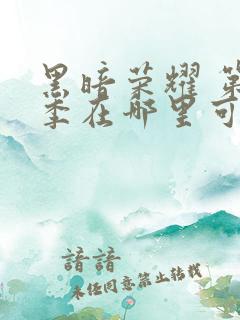 黑暗荣耀 第
季在哪里可
諳諳
未经同意禁止转载